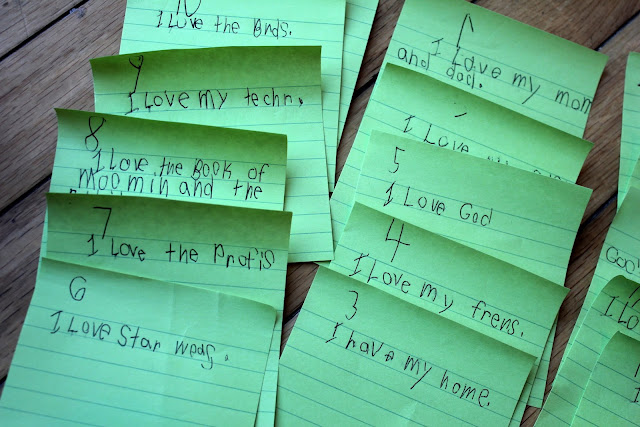 10
I Love the Bnds.
9
I Love my techr.
8
I love the Book of
Moomin and the
7
I Love the Profis
6
I Love Star weas.
1
I Love my mom
and dad.
I Love
5
I Love God
4
I Love my frens.
3
I have my home.
I Lo